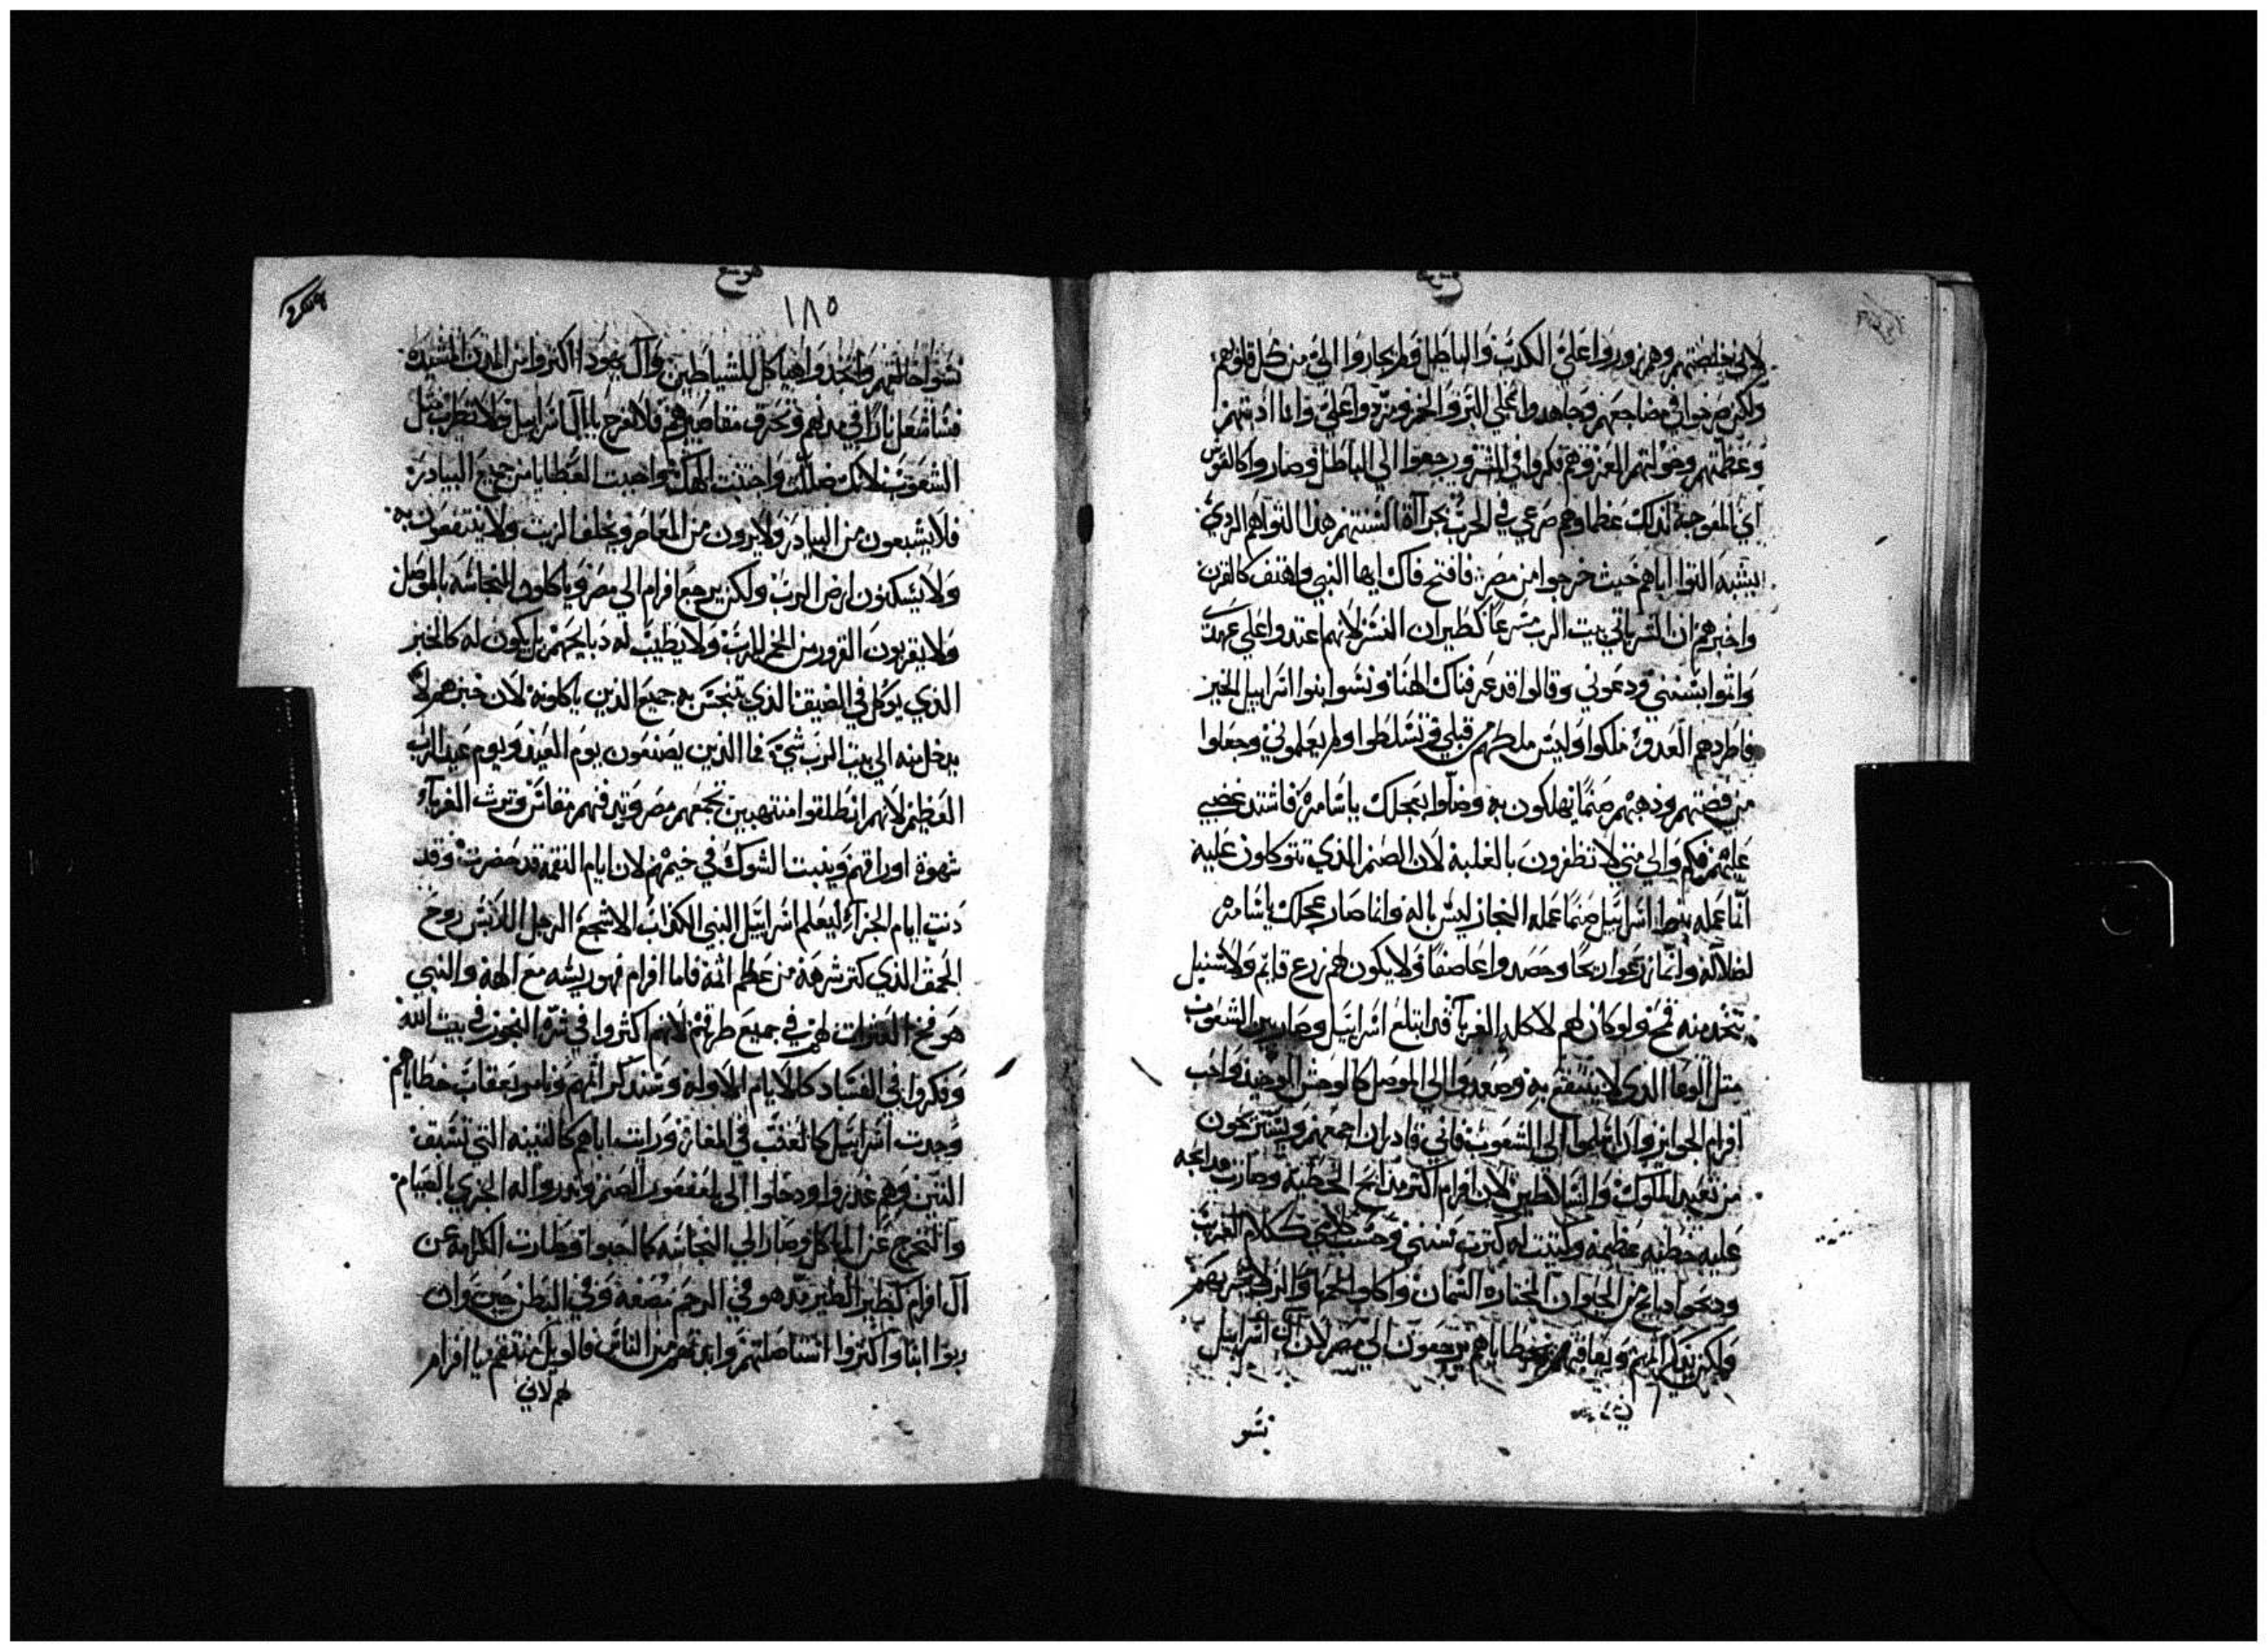 هوشع
لاني خلصتهم وهم زوروا علي الكدب والباطل ولم يجاروا الي من كل قلوبهم
ولكن صرخوا في مضاجعهم وجاهدوا علي البر والخمر ومردوا علي وانا ادبتهم
وعظمتهم وخولتهم العز وهم فكروا في الشر ورجعوا الي الباطل وصاروا كالقوس
اي المعوجة لذلك عظماوهم صرعي في الحرب بجراة السنتهم هذا التواهم الردي
يشبه التوا اباهم حيث خرجوا من مصر فافتح فاك ايها النبي واهتف كالقرن
واخبرهم ان الشر ياتي بيت الرب مسرعا كطيران النسر لانهم اعتدوا علي عهدي
واثموا بسنني ودعوني وقالوا قد عرفناك الهنا ونسوا بنوا اسراييل الخير
فاطردهم العدو ملكوا وليس ملكهم من قبلي وتسلطوا ولم يعلموني وجعلوا
من فضتهم ودهبهم صنما يهلكون به وضلوا بعجلك ياسامره فاشتد غضبي
عليهم والي متي لا تظفرون بالغلبة لان الصنم الذي تتوكلون عليه
انما عمله اسراييل صنما عمله النجار ليس باله وانما صار عجلك ياسامره
لضلاله وانما زرعوا ريحا وحصدوا عاصفا ولا يكون لهم زرع قايم ولا سنبل
يتخد منه قمح ولو كان لهم لاكله الغربا قد ابتلع اسراييل وصار بين الشعوب
مثل الوعا الدي لا ينتفع به وصعدوا الي الموصل كالوحش الوحيد واحب
افرام الجوايز وان اسلموا الي الشعوب فاني قادر ان اجمعهم ويستريحون
من تعبد الملوك والسلاطين لان افرام اكثر مدابح الخطية وصارت مدابحه
عليه خطيه عظيمه وكتبت له كثرت سنني وحسب كلامي ككلام الغريب
ودبحوا دبايح من الحيوان المختاره السمان واكلوا لحمها والرب لا يسر بهم
ولكن يذكر اثمهم ويعاقبهم بخطاياهم يرجعون الي مصر لان ال اسراييل
نسو
هوشع
١٨٥
نسوا خالقهم واتخذوا هياكل للشياطين وال يهودا اكثروا من المدن المشيده
فساشعل نارا في مدنهم وتحرق مقاصيرهم فلا تفرح يا ال اسراييل ولا تطرب مثل
الشعوب لانك ضللت واجتنبت الهك واحببت العطايا من جميع البيادر
فلا يشبعون من البيادر ولا يروون من المعاصر ويخلف الزيت ولا ينتفعون به
ولا يسكنون ارض الرب ولكن يرجع افرام الي مصر وياكلون النجاسه بالموصل
ولا يقربون القرور من الخمر للرب ولا يطيب له دبايحهم بل يكون له كالخبز
الذي يوكل في الضيقه الذي يتنجس به جميع الذين ياكلونه لان خبزهم لا
يدخل منه الي بيت الرب شي فما الذين يصنعون يوم العيد ويوم عيد الرب
العظيم لانهم انطلقوا منتهبين تجمعهم مصر وتدفنهم منفاس وترث الغربا
شهوة اوراقهم وينبت الشوك في خيمهم لان ايام النقمه قد حضرت وقد
دنت ايام الجزا ليعلم اسراييل النبي الكذاب الاشجع الرجل اللابس روح
الحمق الذي كثر شرهه من عظم اثمه فاما افرام فهو ربيئه مع الهه والنبي
هو فخ العثرات لهم في جميع طرقهم لانهم اكثروا في شره الفجور في بيت الله
وفكروا في الفساد كالايام الاوله وسنذكر اثمهم ونامر بعقاب خطاياهم
وجدت اسراييل كالعنب في المفاز ورايت اباهم كالتينه التي تسبق
التين وهم عبروا ودخلوا الي بلفغور الصنم ونذروا له الخزي بالصيام
والتحرج عن الماكل وصار الي النجاسه كما احبوا وطارت الكرامة عن
ال افرام كطير الطير مذ هو في الرحم مضغه وفي البطن جنين وان
ربوا ابنا واكثروا استاصلتهم وابدتهم من الناس فالويل لمنتقم يا افرام
لهم لاني